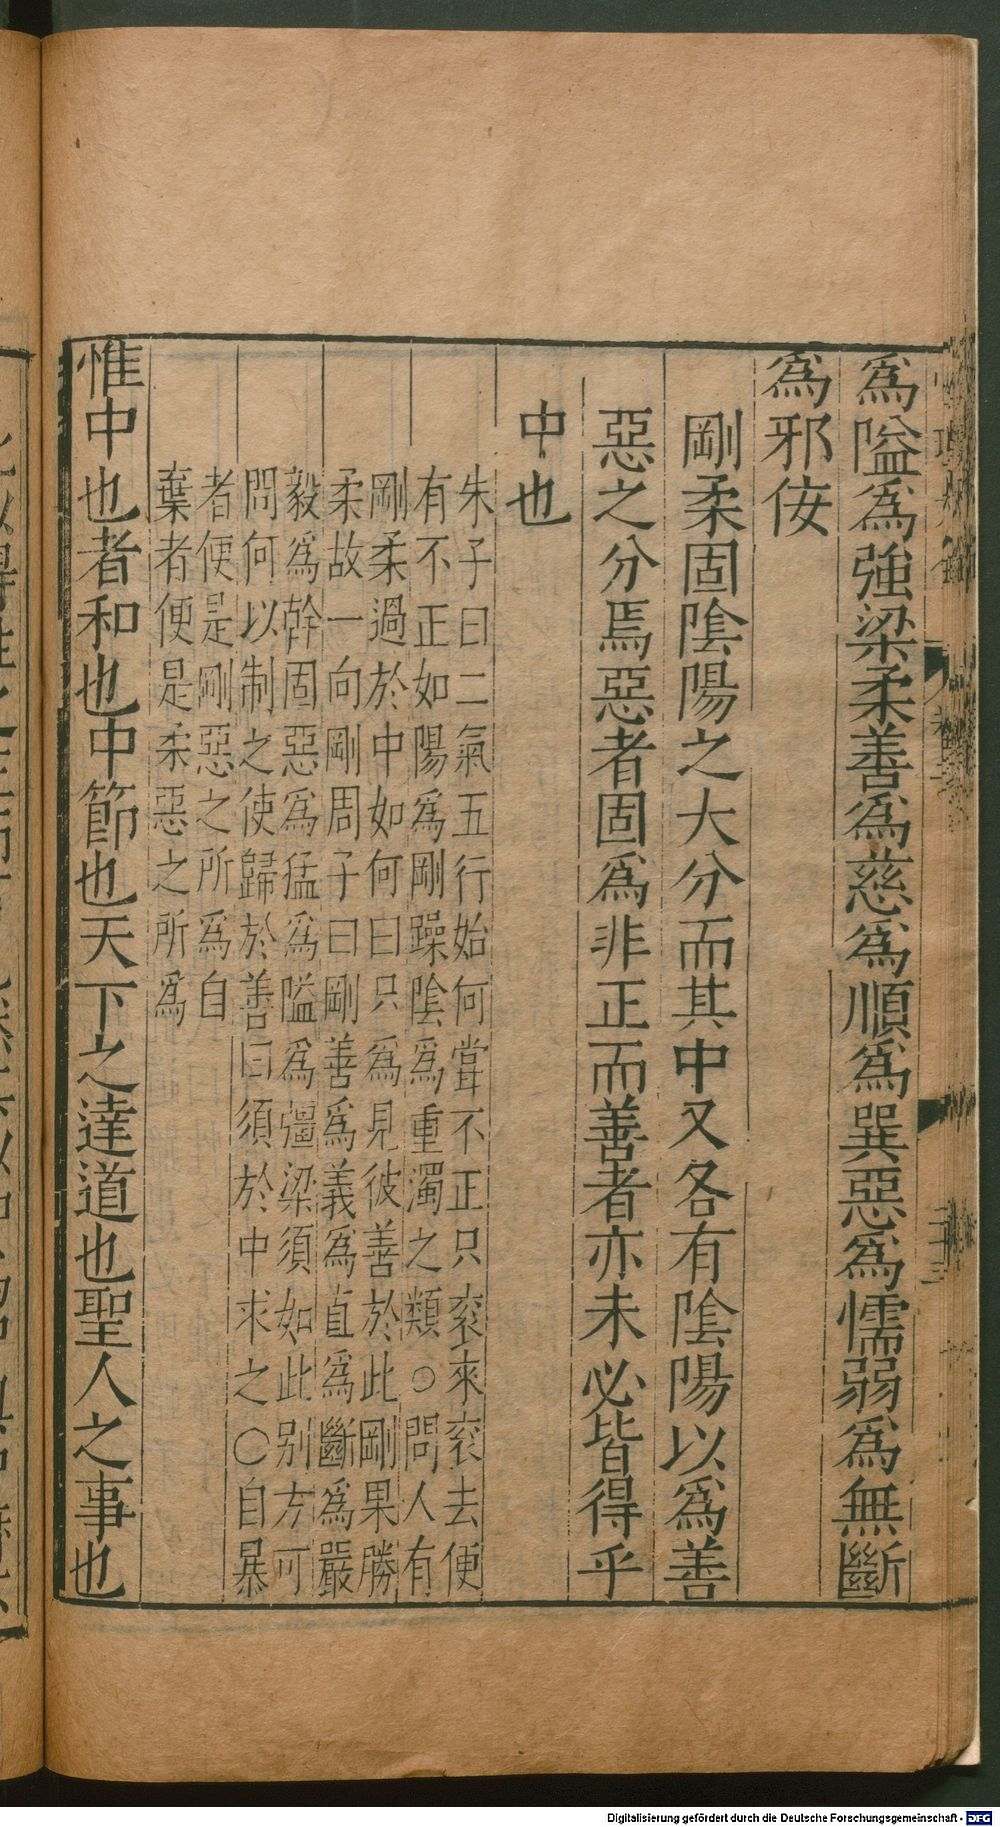 為隘為強梁柔善為慈為順為巽惡為懦弱為無斷
為邪佞
剛柔固陰陽之大分而其中又各有陰陽以為善
惡之分焉惡者固為非正而善者亦未必皆得乎
中也
朱子曰二氣五行始何嘗不正只衮來衮去便
有不正如陽為剛躁陰為重濁之類○問人有
剛柔過於中如何曰只為見彼善於此剛果勝
柔故一向剛周子曰剛善為義為直為斷為嚴
毅為幹固惡為猛為隘為彊梁須如此別方可
問何以制之使歸於善曰須於中求之○自暴
者便是剛惡之所為自
棄者便是柔惡之所為
惟中也者和也中節也天下之達道也聖人之事也
Digitalisierung gefördert durch die Deutsche Forschungsgemeinschaft - DFG